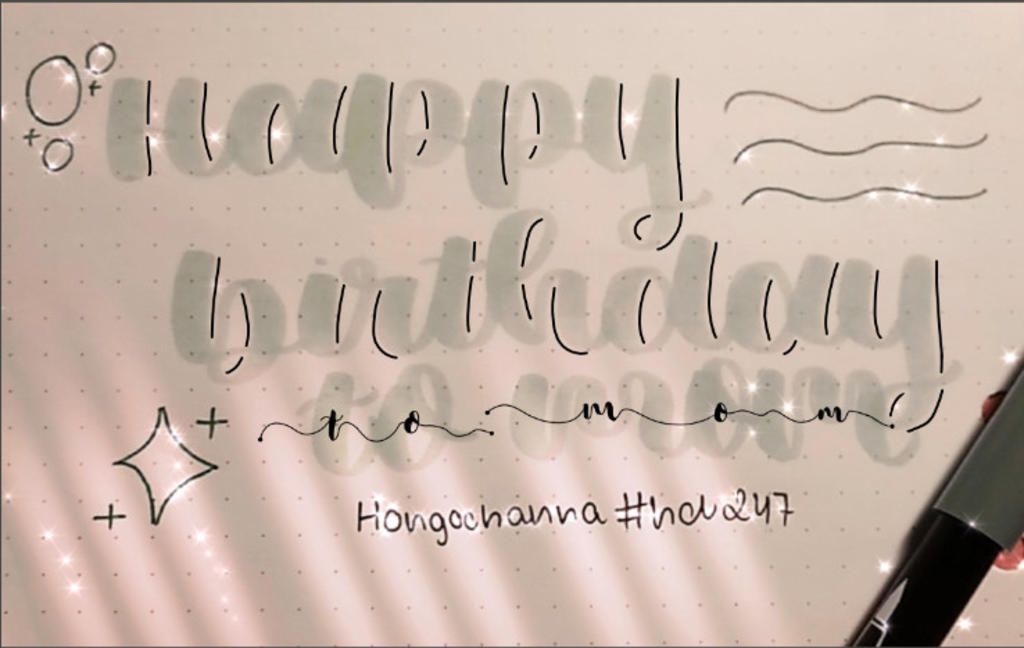 Happy
birthday
to mom
Hongochanna #hd247